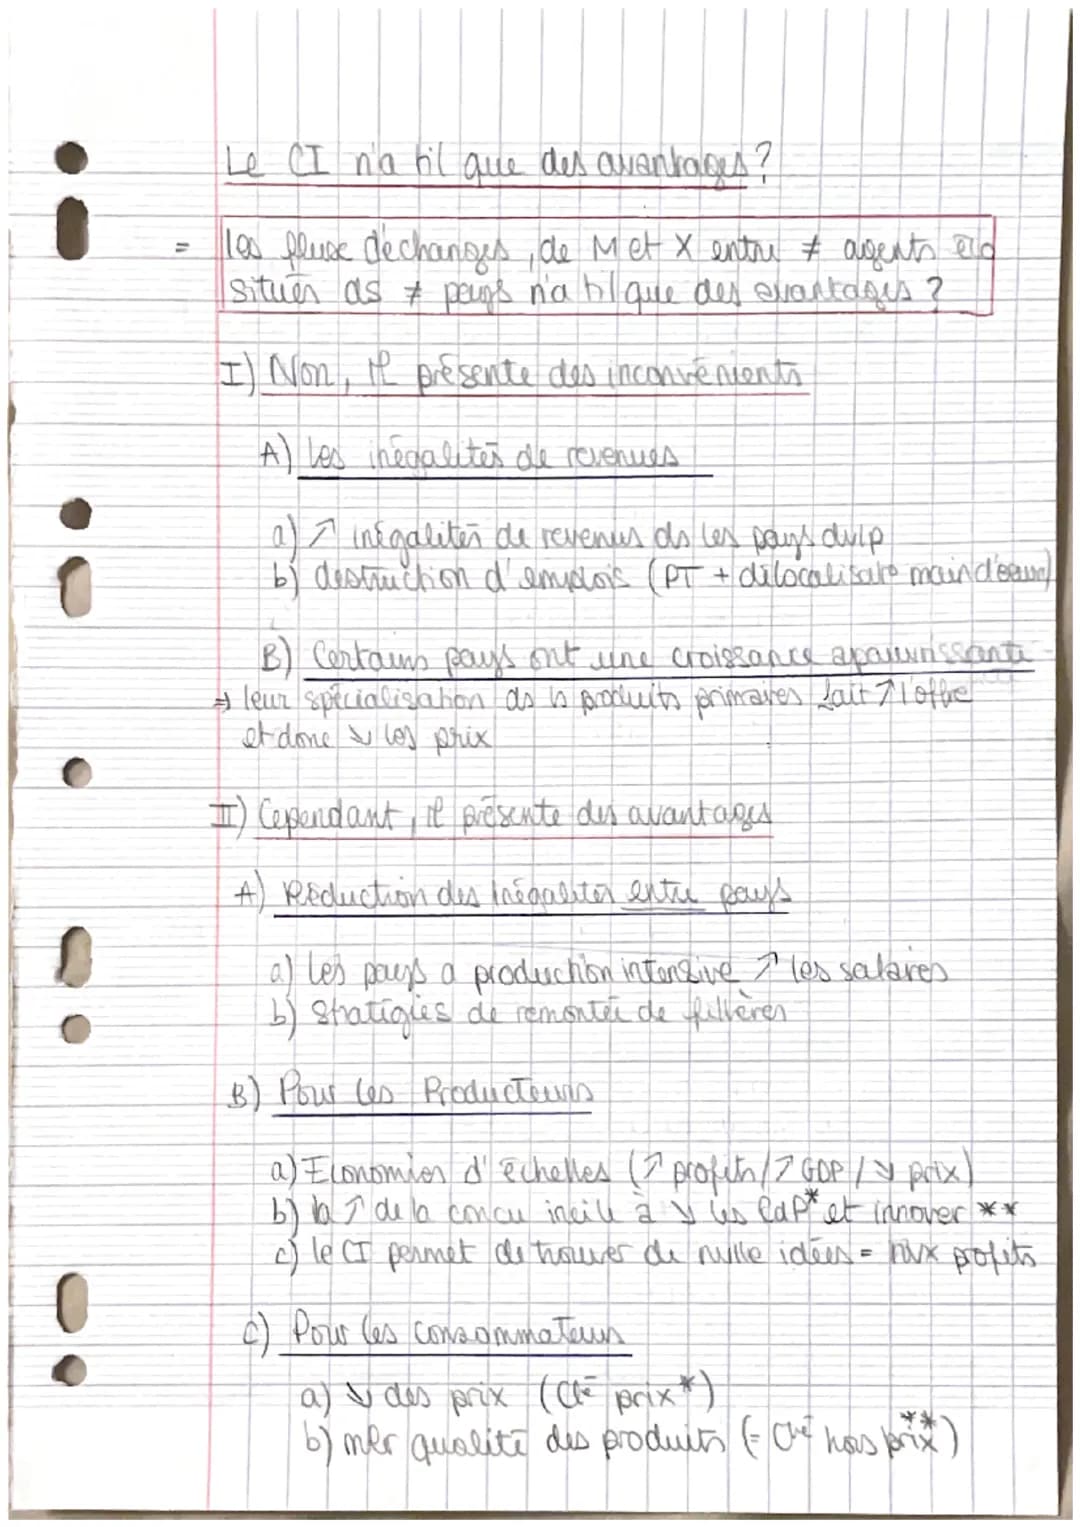 Le CI n'a til que des avantages ?
= les flux d'échanges, de M et X entre ≠ agents éco
situés ds ≠ pays n'a til que des avantages ?
I) Non, il présente des inconvénients
A) Les inégalités de revenues
a) ↗ inégalités de revenus ds les pays dvlp
b) destruction d'emplois (PT + délocalisat° main d'œuvre)
B) Certains pays ont une croissance apauvrissante
⇒ leur spécialisation ds ls produits primaires fait ↗ l'offre
et donc ↘ les prix
II) Cependant, il présente des avantages
A) Réduction des inégalités entre pays
a) Les pays a production intensive ↗ les salaires
b) Stratégies de remontée de fillières
B) Pour les Producteurs
a) Economies d'échelles (↗ profits / ↗ GDP / ↘ prix)
b) la ↗ de la concu incite à ↘ les CdP* et innover **
c) le CI permet de trouver de nvlle idées = nvx profits
C) Pour les consommateurs
a) ↘ des prix (Cté prix*)
b) mllr qualité des produits (= Cté hors prix**)